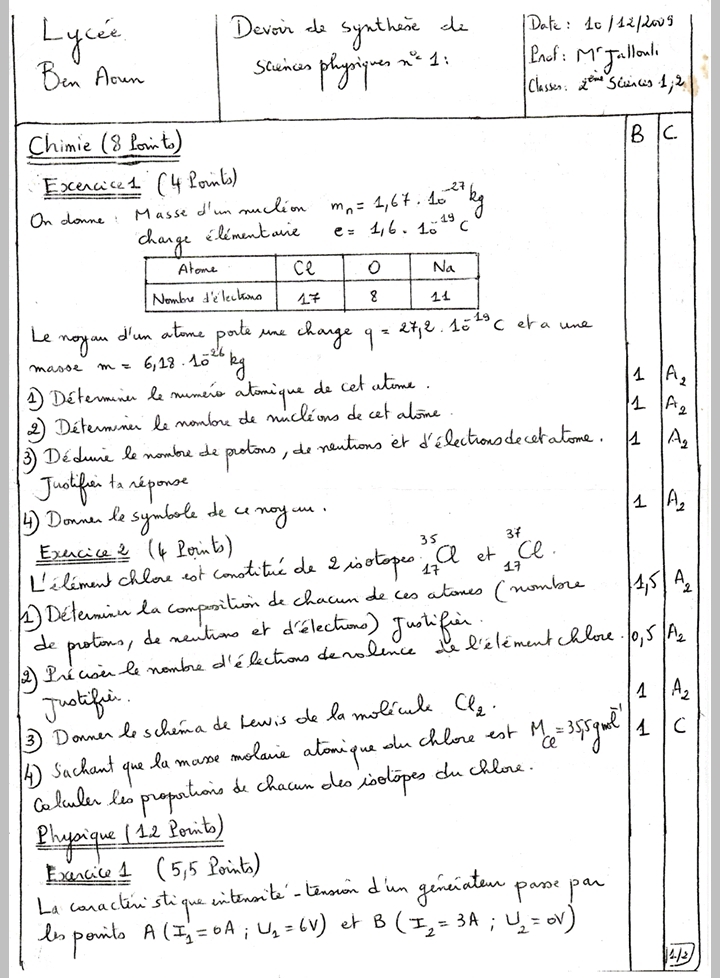 Lycée
Ben Aoun
Devoir de synthèse de
Sciences physiques n°= 1:
Date : 10/12/2009
Prof : Mr Jallouli
Classes : 2ème Sciences 1,2
B C
Chimie (8 Points)
Excercice 1 (4 Points)
On donne : Masse d'un nucléon mn = 1,67 . 10^-27 kg
charge élémentaire e = 1,6 . 10^-19 C
Atome Cl O Na
Nombre d'électrons 17 8 11
Le noyau d'un atome porte une charge q = 27,2 . 10^-19 C et a une
masse m = 6,18 . 10^-26 kg
1) Déterminer le numéro atomique de cet atome . 1 A2
2) Déterminer le nombre de nucléons de cet atome . 1 A2
3) Déduire le nombre de protons, de neutrons et d'électrons de cet atome . 1 A2
Justifier ta réponse
4) Donner le symbole de ce noyau . 1 A2
Exercice 2 (4 Points)
L'élément chlore est constitué de 2 isotopes : 35 17 Cl et 37 17 Cl .
1) Déterminer la composition de chacun de ces atomes (nombre 1,5 A2
de protons, de neutrons et d'électrons) Justifier .
2) Préciser le nombre d'électrons de valence de l'élément chlore . 0,5 A2
Justifier .
3) Donner le schéma de Lewis de la molécule Cl2 . 1 A2
4) Sachant que la masse molaire atomique du chlore est MCl = 35,5 g mol^-1 1 C
Calculer les proportions de chacun des isotopes du chlore .
Physique (12 Points)
Exercice 1 (5,5 Points)
La caractéristique intensité-tension d'un générateur passe par
les points A (I1 = 0A ; U1 = 6V) et B (I2 = 3A ; U2 = 0V)
1/2